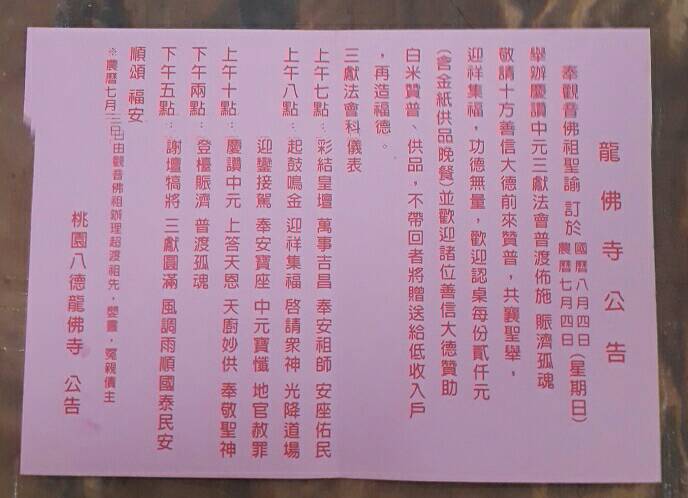 龍佛寺公告
奉觀音佛祖聖諭 訂於國曆八月四日農曆七月四日(星期日)
舉辦慶讚中元三獻法會普渡佈施 賑濟孤魂
敬請十方善信大德前來贊普,共襄聖舉,
迎祥集福,功德無量,歡迎認桌每份貳仟元
(含金紙供品晚餐)並歡迎諸位善信大德贊助
白米贊普、供品,不帶回者將贈送給低收入戶
,再造福德。
三獻法會科儀表
上午七點:彩結皇壇 萬事吉昌 奉安祖師 安座佑民
上午八點:起鼓鳴金 迎祥集福 啓請衆神 光降道場
迎鑾接駕 奉安寶座 中元寶懺 地官赦罪
上午十點:慶讚中元 上答天恩 天廚妙供 奉敬聖神
下午兩點:登檯賑濟 普渡孤魂
下午五點:謝壇犒將 三獻圓滿 風調雨順國泰民安
順頌 福安
※農曆七月三日由觀音佛祖辦理超渡祖先,嬰靈,冤親債主
桃園八德龍佛寺 公告